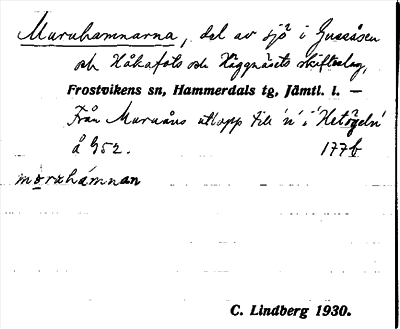 Muruhamnarna, del av sjö i Gussåsen
och Håkafots och Häggnäsets skifteslag,
Frostvikens sn, Hammerdals tg, Jämtl. l. —
Från Muruåns utlopp till 'n' i 'Hetögeln'
å G52. 177b
morxhámnan
C. Lindberg 1930.